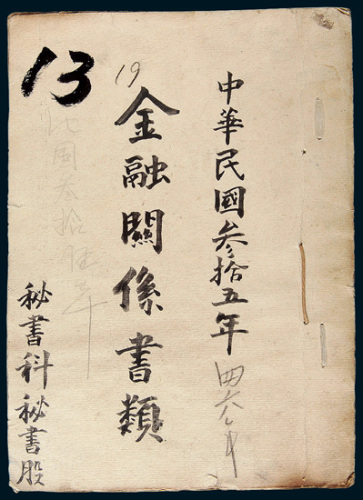 中華民國叁拾五年
19
金融關係書類
13
秘書科秘書股